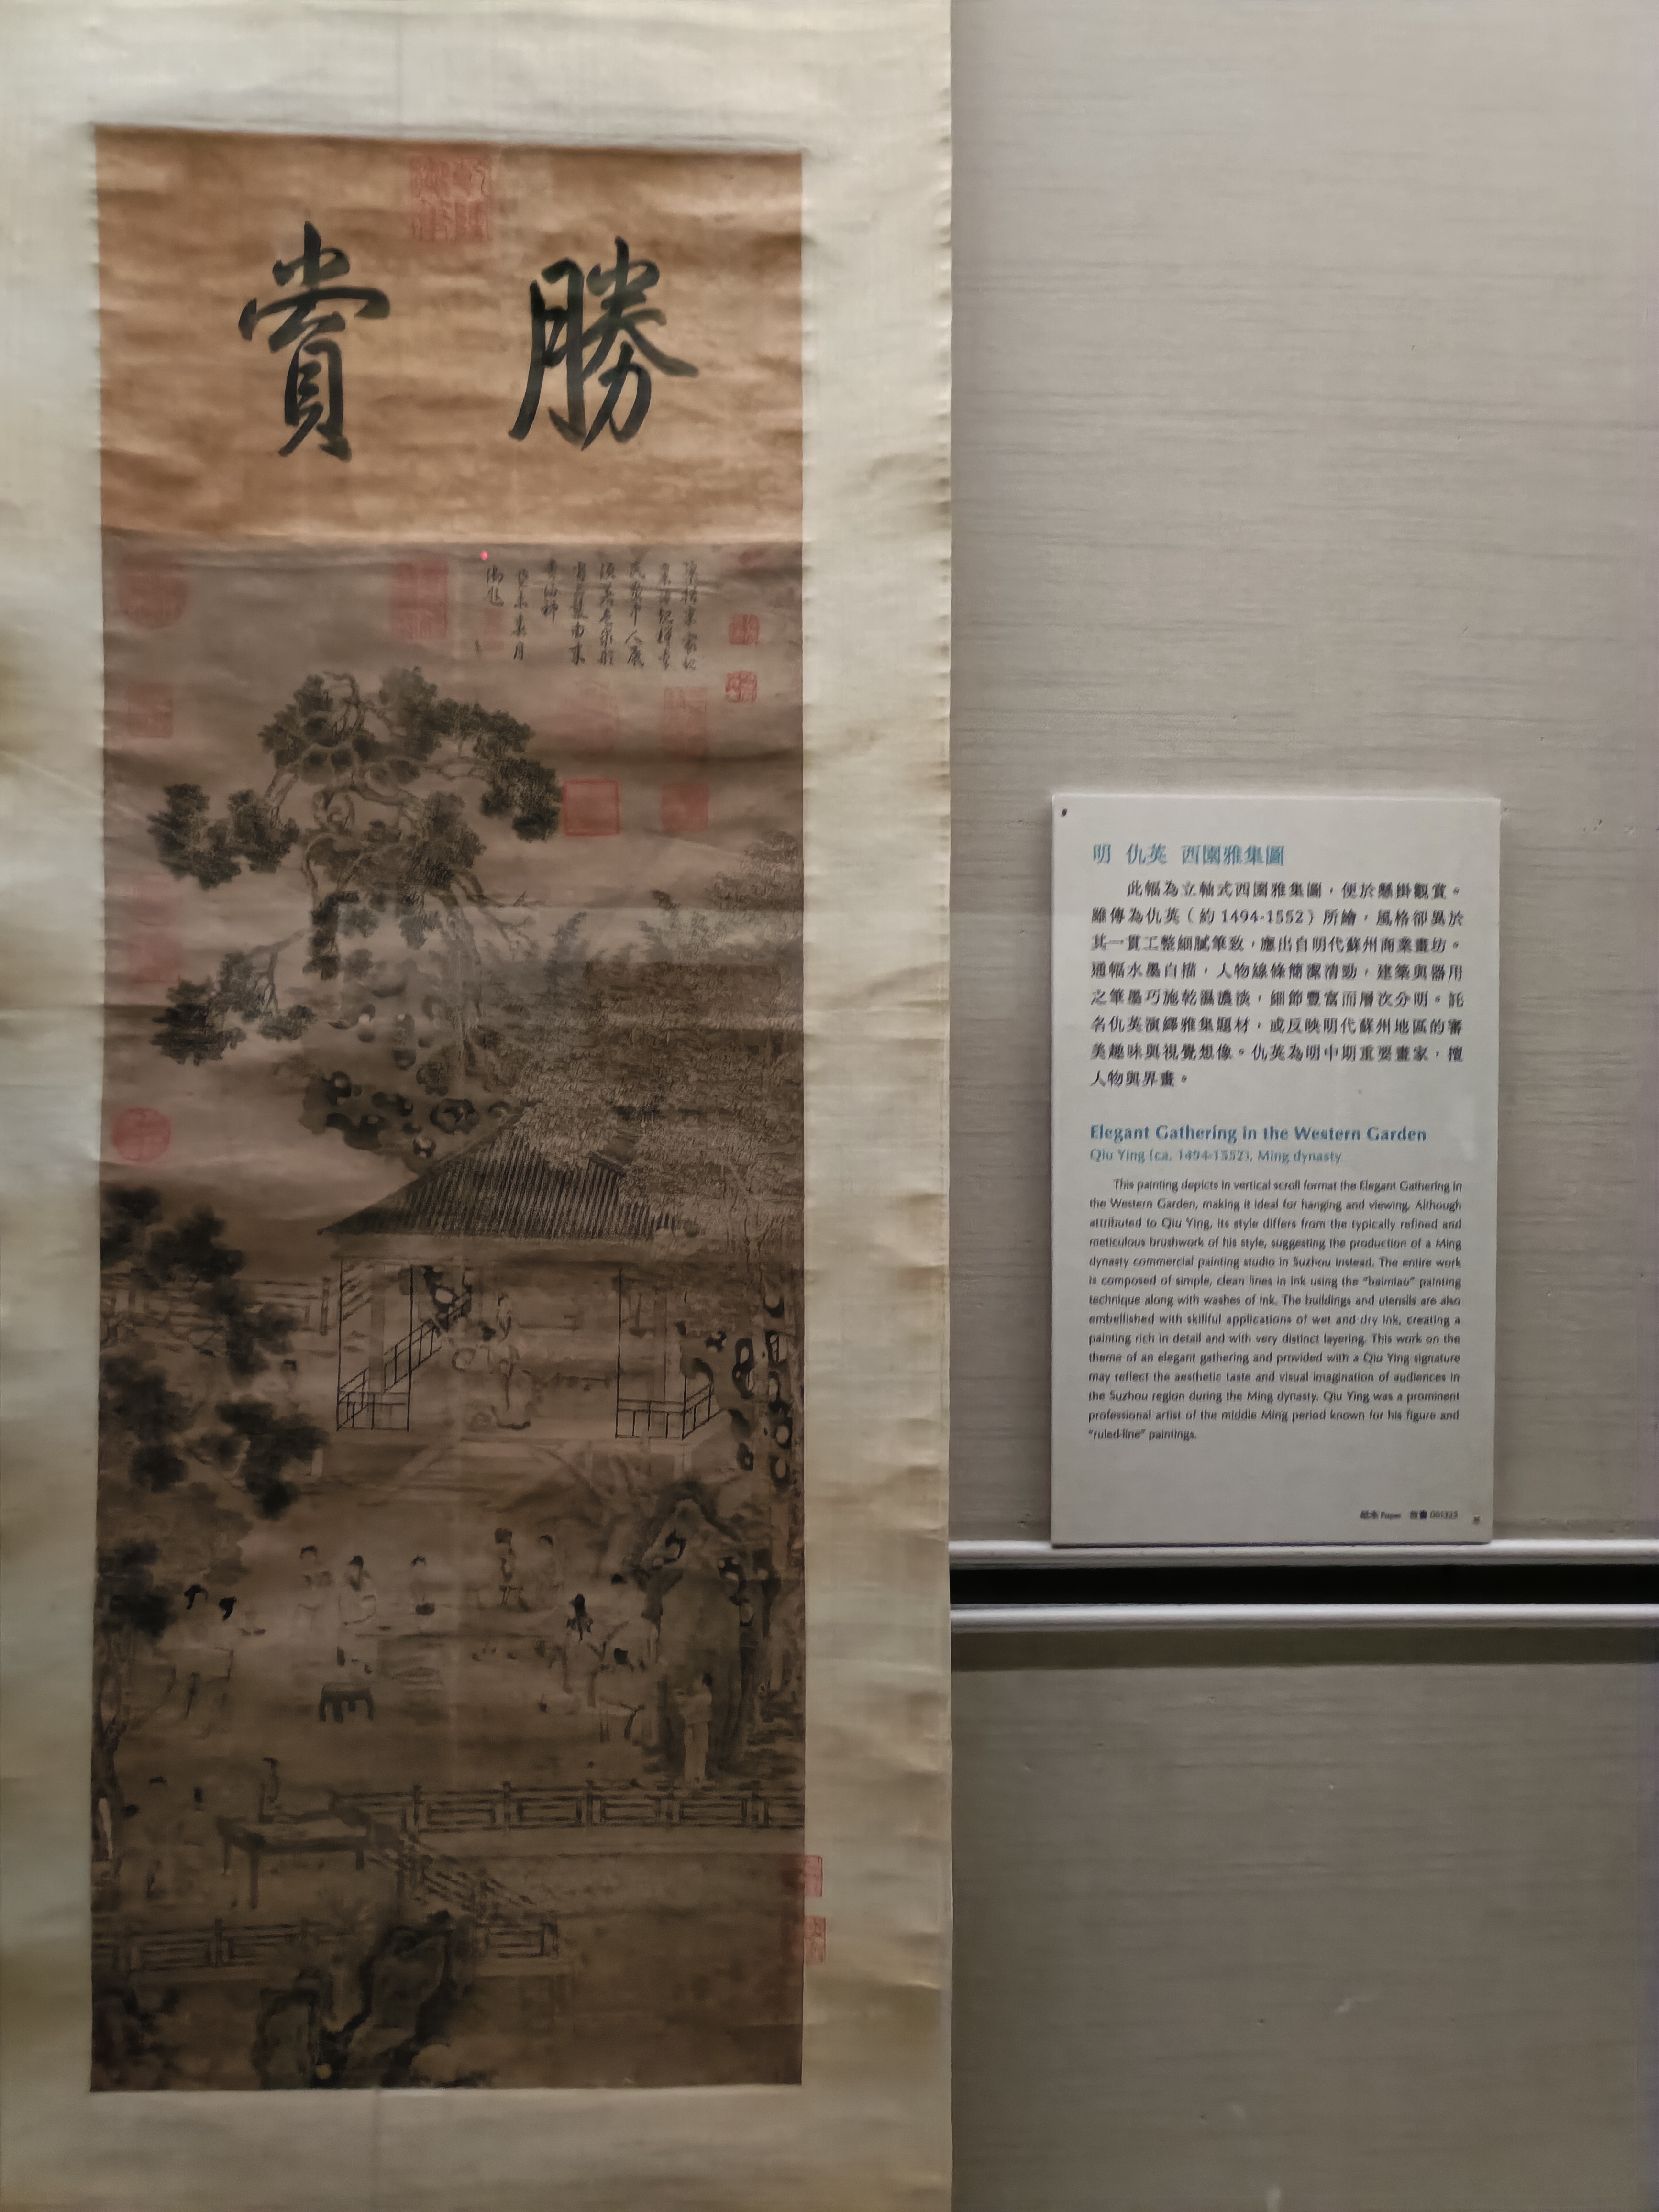 勝賞
癸未春月
御題
明 仇英 西園雅集圖
此幅為立軸式西園雅集圖，便於懸掛觀賞。
雖傳為仇英（約1494-1552）所繪，風格卻異於
其一貫工整細膩筆致，應出自明代蘇州商業畫坊。
通幅水墨白描，人物線條簡潔清勁，建築與器用
之筆墨巧施乾濕濃淡，細節豐富而層次分明。託
名仇英演繹雅集題材，或反映明代蘇州地區的審
美趣味與視覺想像。仇英為明中期重要畫家，擅
人物與界畫。
Elegant Gathering in the Western Garden
Qiu Ying (ca. 1494-1552), Ming dynasty
This painting depicts in vertical scroll format the Elegant Gathering in
the Western Garden, making it ideal for hanging and viewing. Although
attributed to Qiu Ying, its style differs from the typically refined and
meticulous brushwork of his style, suggesting the production of a Ming
dynasty commercial painting studio in Suzhou instead. The entire work
is composed of simple, clean lines in ink using the "baimiao" painting
technique along with washes of ink. The buildings and utensils are also
embellished with skillful applications of wet and dry ink, creating a
painting rich in detail and with very distinct layering. This work on the
theme of an elegant gathering and provided with a Qiu Ying signature
may reflect the aesthetic taste and visual imagination of audiences in
the Suzhou region during the Ming dynasty. Qiu Ying was a prominent
professional artist of the middle Ming period known for his figure and
"ruled-line" paintings.
紙本 Paper 故畫